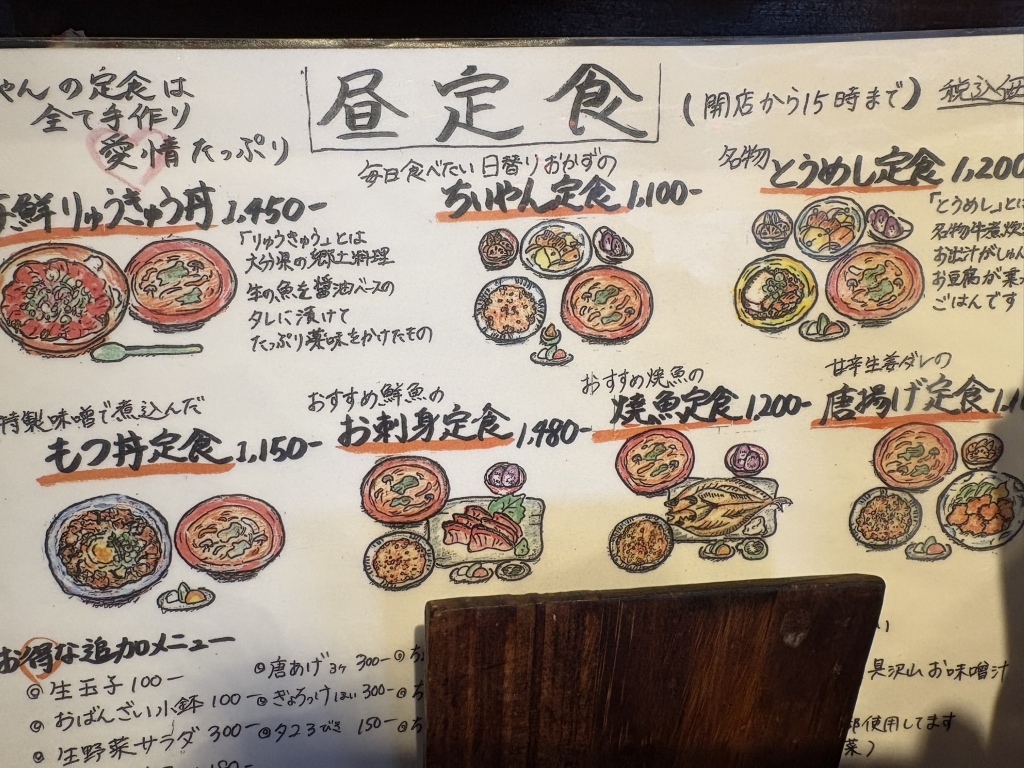 やんの定食は
全て手作り
愛情たっぷり
昼定食
(開店から15時まで)
税込価
海鮮りゅうきゅう丼 1,450-
「りゅうきゅう」とは
大分県の郷土料理
生の魚を醤油ベースの
タレに漬けて
たっぷり薬味をかけたもの
毎日食べたい日替りおかずの
ちいやん定食 1,100-
名物
とうめし定食 1,200
「とうめし」とは
名物牛煮炊
お出汁がしゅん
お豆腐が乗っ
ごはんです
特製味噌で煮込んだ
もつ丼定食 1,150-
おすすめ鮮魚の
お刺身定食 1,480-
おすすめ焼魚の
焼魚定食 1,200-
甘辛生姜ダレの
唐揚げ定食
お得な追加メニュー
◎生玉子 100-
◎おばんざい小鉢 100-
◎生野菜サラダ 300-
◎唐あげ3ヶ 300-
◎ぎょろっけ 300-
150-
具沢山お味噌汁
使用してます
菜)